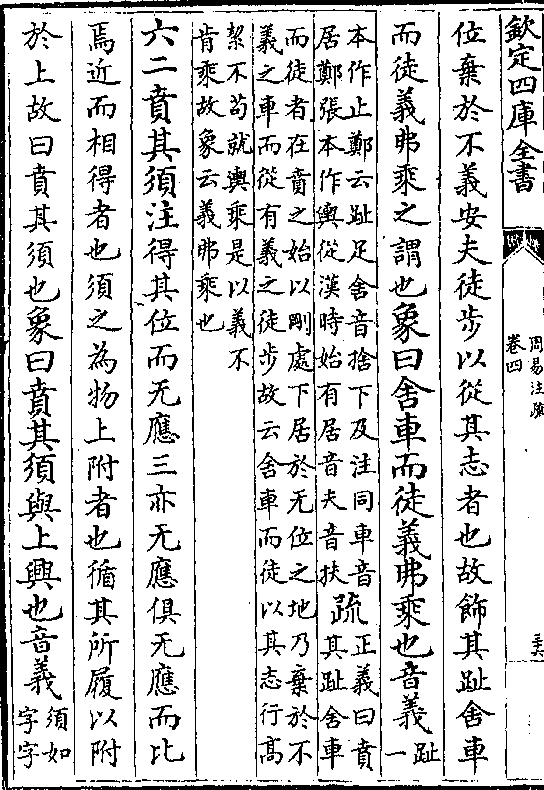 欽定四庫全書
周易注疏
卷四
位棄於不義安夫徒步以從其志者也故飾其趾舍車
而徒義弗乗之謂也象曰舍車而徒義弗乗也音義趾一
本作止鄭云趾足舍音捨下及注同車音
居鄭張本作輿從漢時始有居音夫音扶
疏正義曰賁
其趾舍車
而徒者在賁之始以剛處下居於无位之地乃棄於不
義之車而從有義之徒步故云舍車而徒以其志行高
絜不苟就輿乗是以義不
肯乗故象云義弗乗也
六二賁其須注得其位而无應三亦无應俱无應而比
焉近而相得者也須之為物上附者也循其所履以附
於上故曰賁其須也象曰賁其須與上興也音義須如
字字